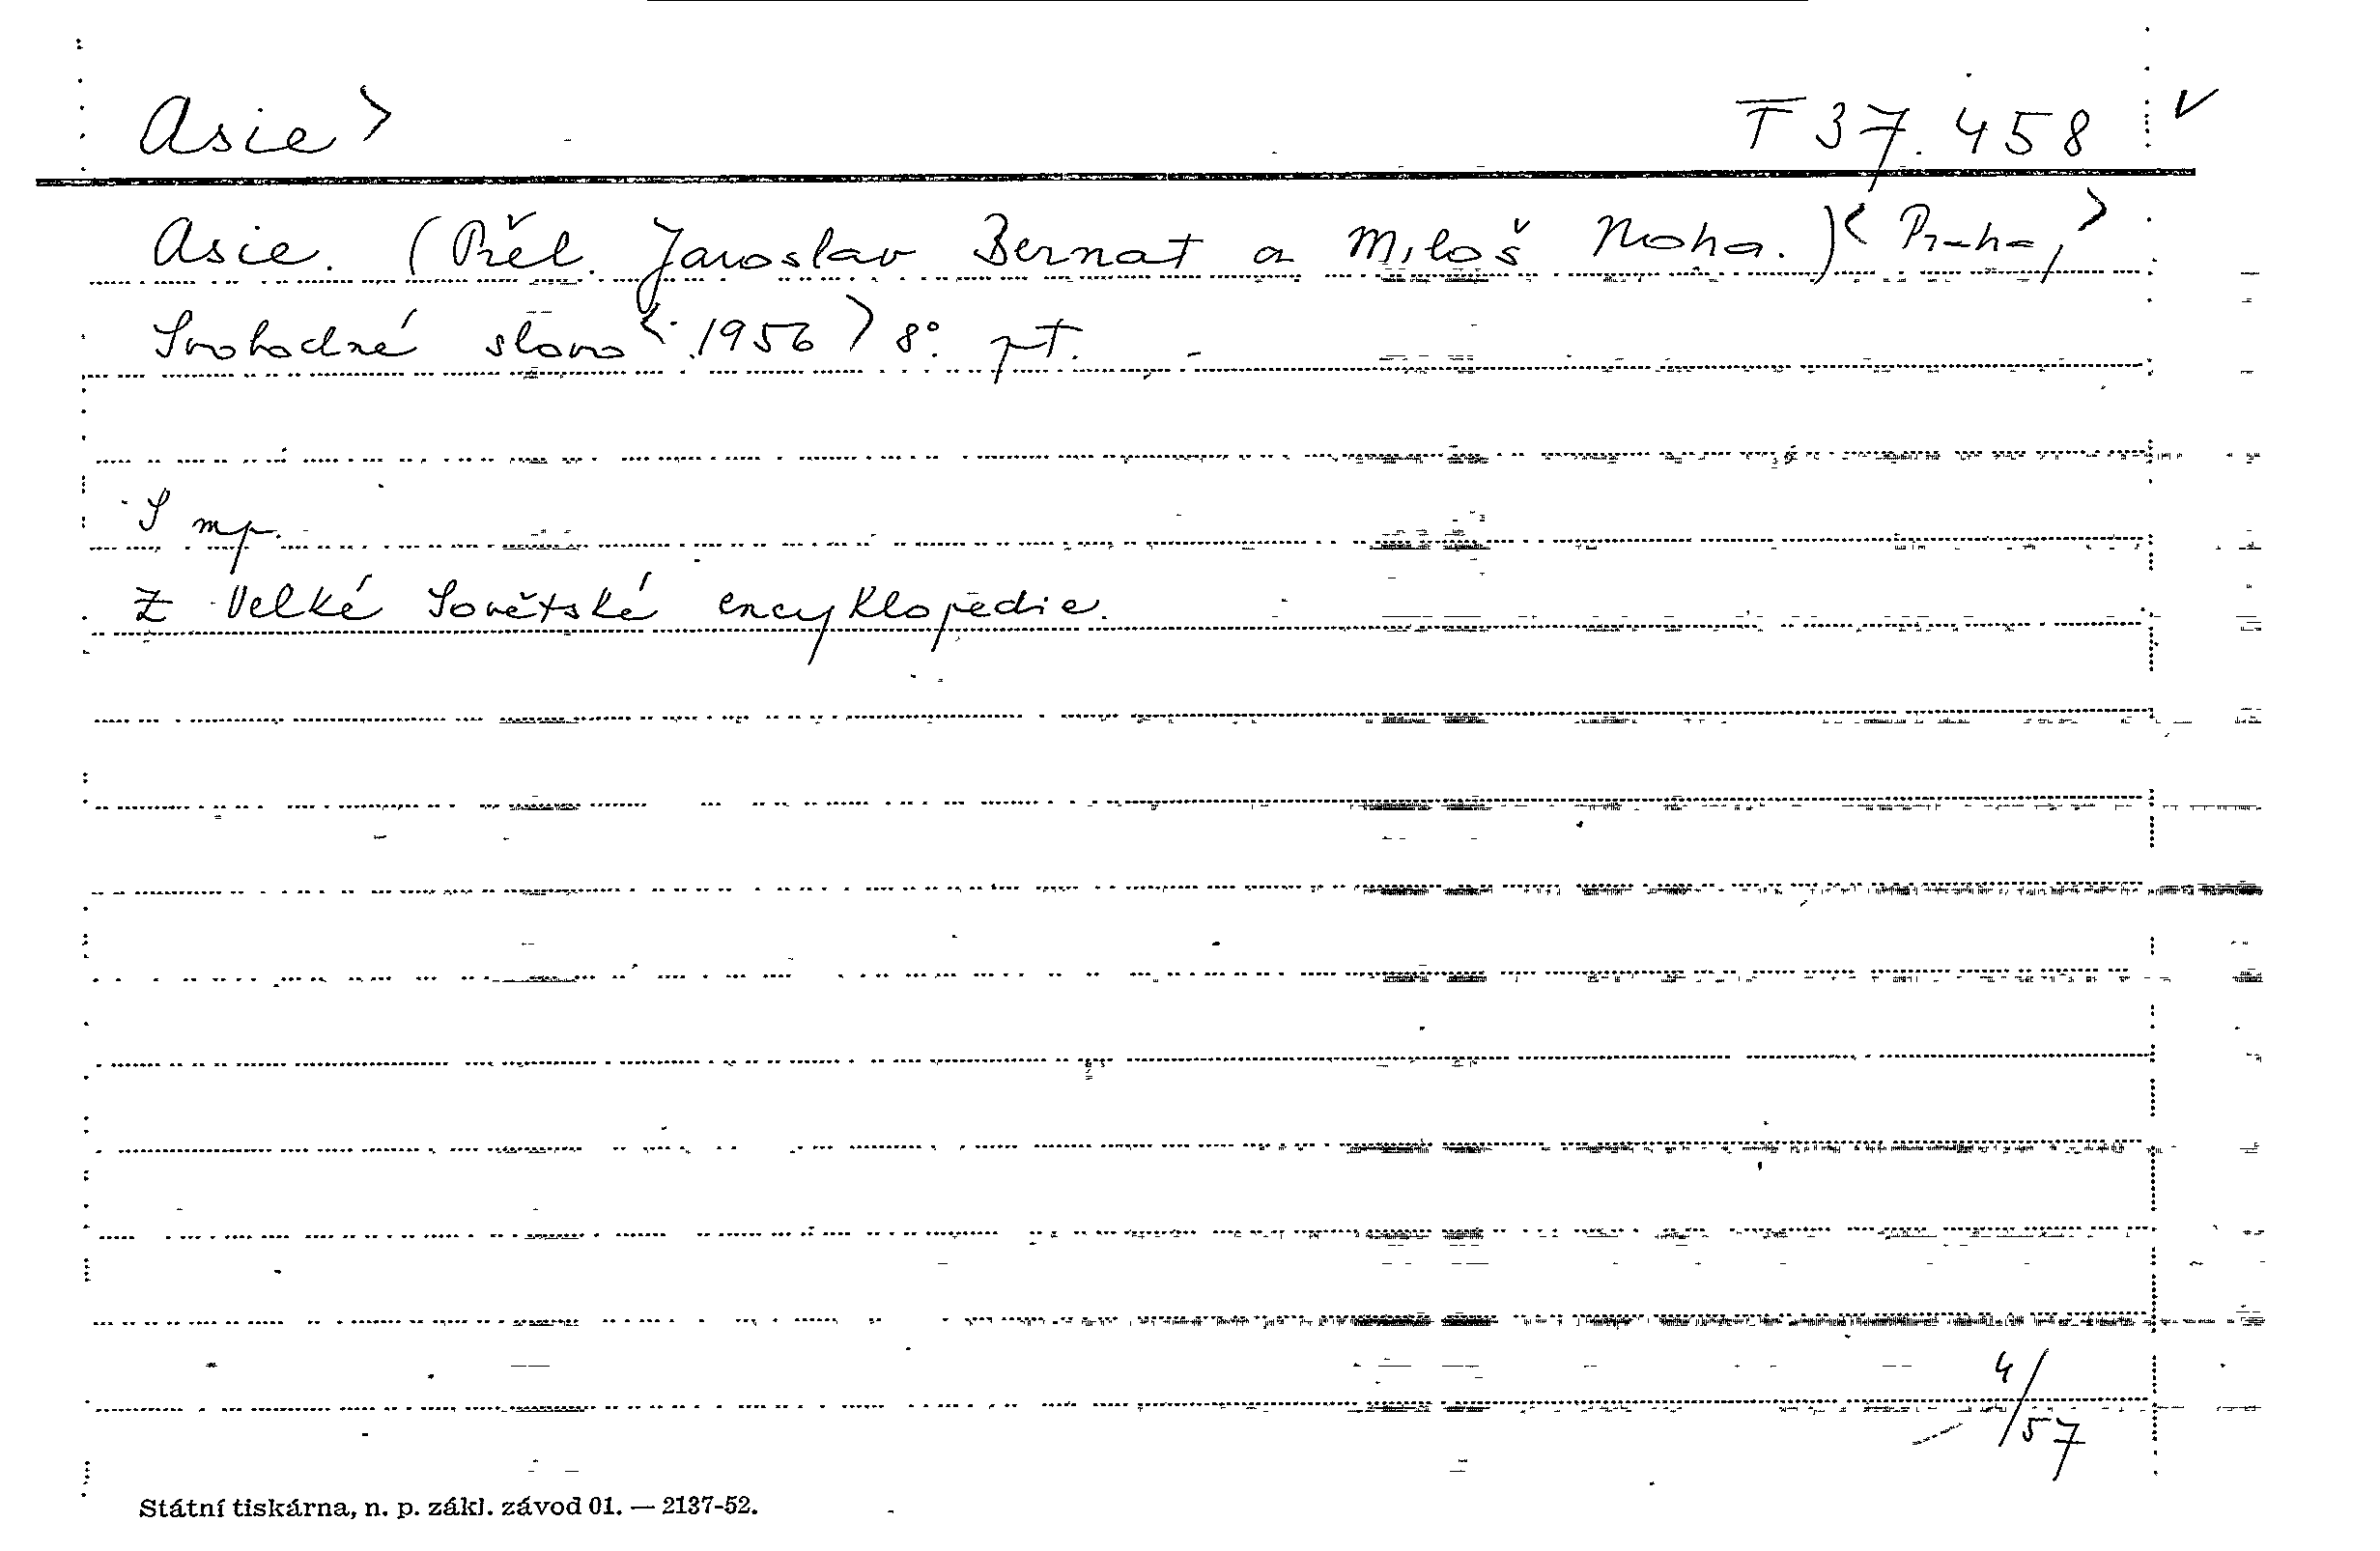 Asie> T 37.458 v
Asie. (Přel. Jaroslav Bernat a Miloš Noha.) <Praha,>
Svobodné slovo <1956> 8°. pt.
S mp.
Z Velké Sovětské encyklopedie.
4/57
Státní tiskárna, n. p. zákl. závod 01. — 2137-52.